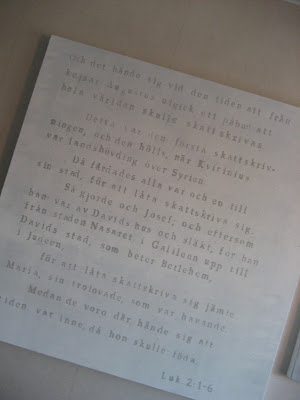 Och det hände sig vid den tiden att från
kejsar Augustus utgick ett påbud att
hela världen skulle skattskrivas.
Detta var den första skattskriv-
ningen, och den hölls, när Kvirinius
var landshövding över Syrien.
Då färdades alla var och en till
sin stad, för att låta skattskriva sig.
Så gjorde och Josef; och eftersom
han var av Davids hus och släkt, for han
från staden Nasaret i Galileen upp till
Davids stad, som heter Betlehem,
i Judeen,
för att låta skattskriva sig jämte
Maria, sin trolovade, som var havande.
Medan de voro där, hände sig att
tiden var inne, då hon skulle föda.
Luk 2:1-6